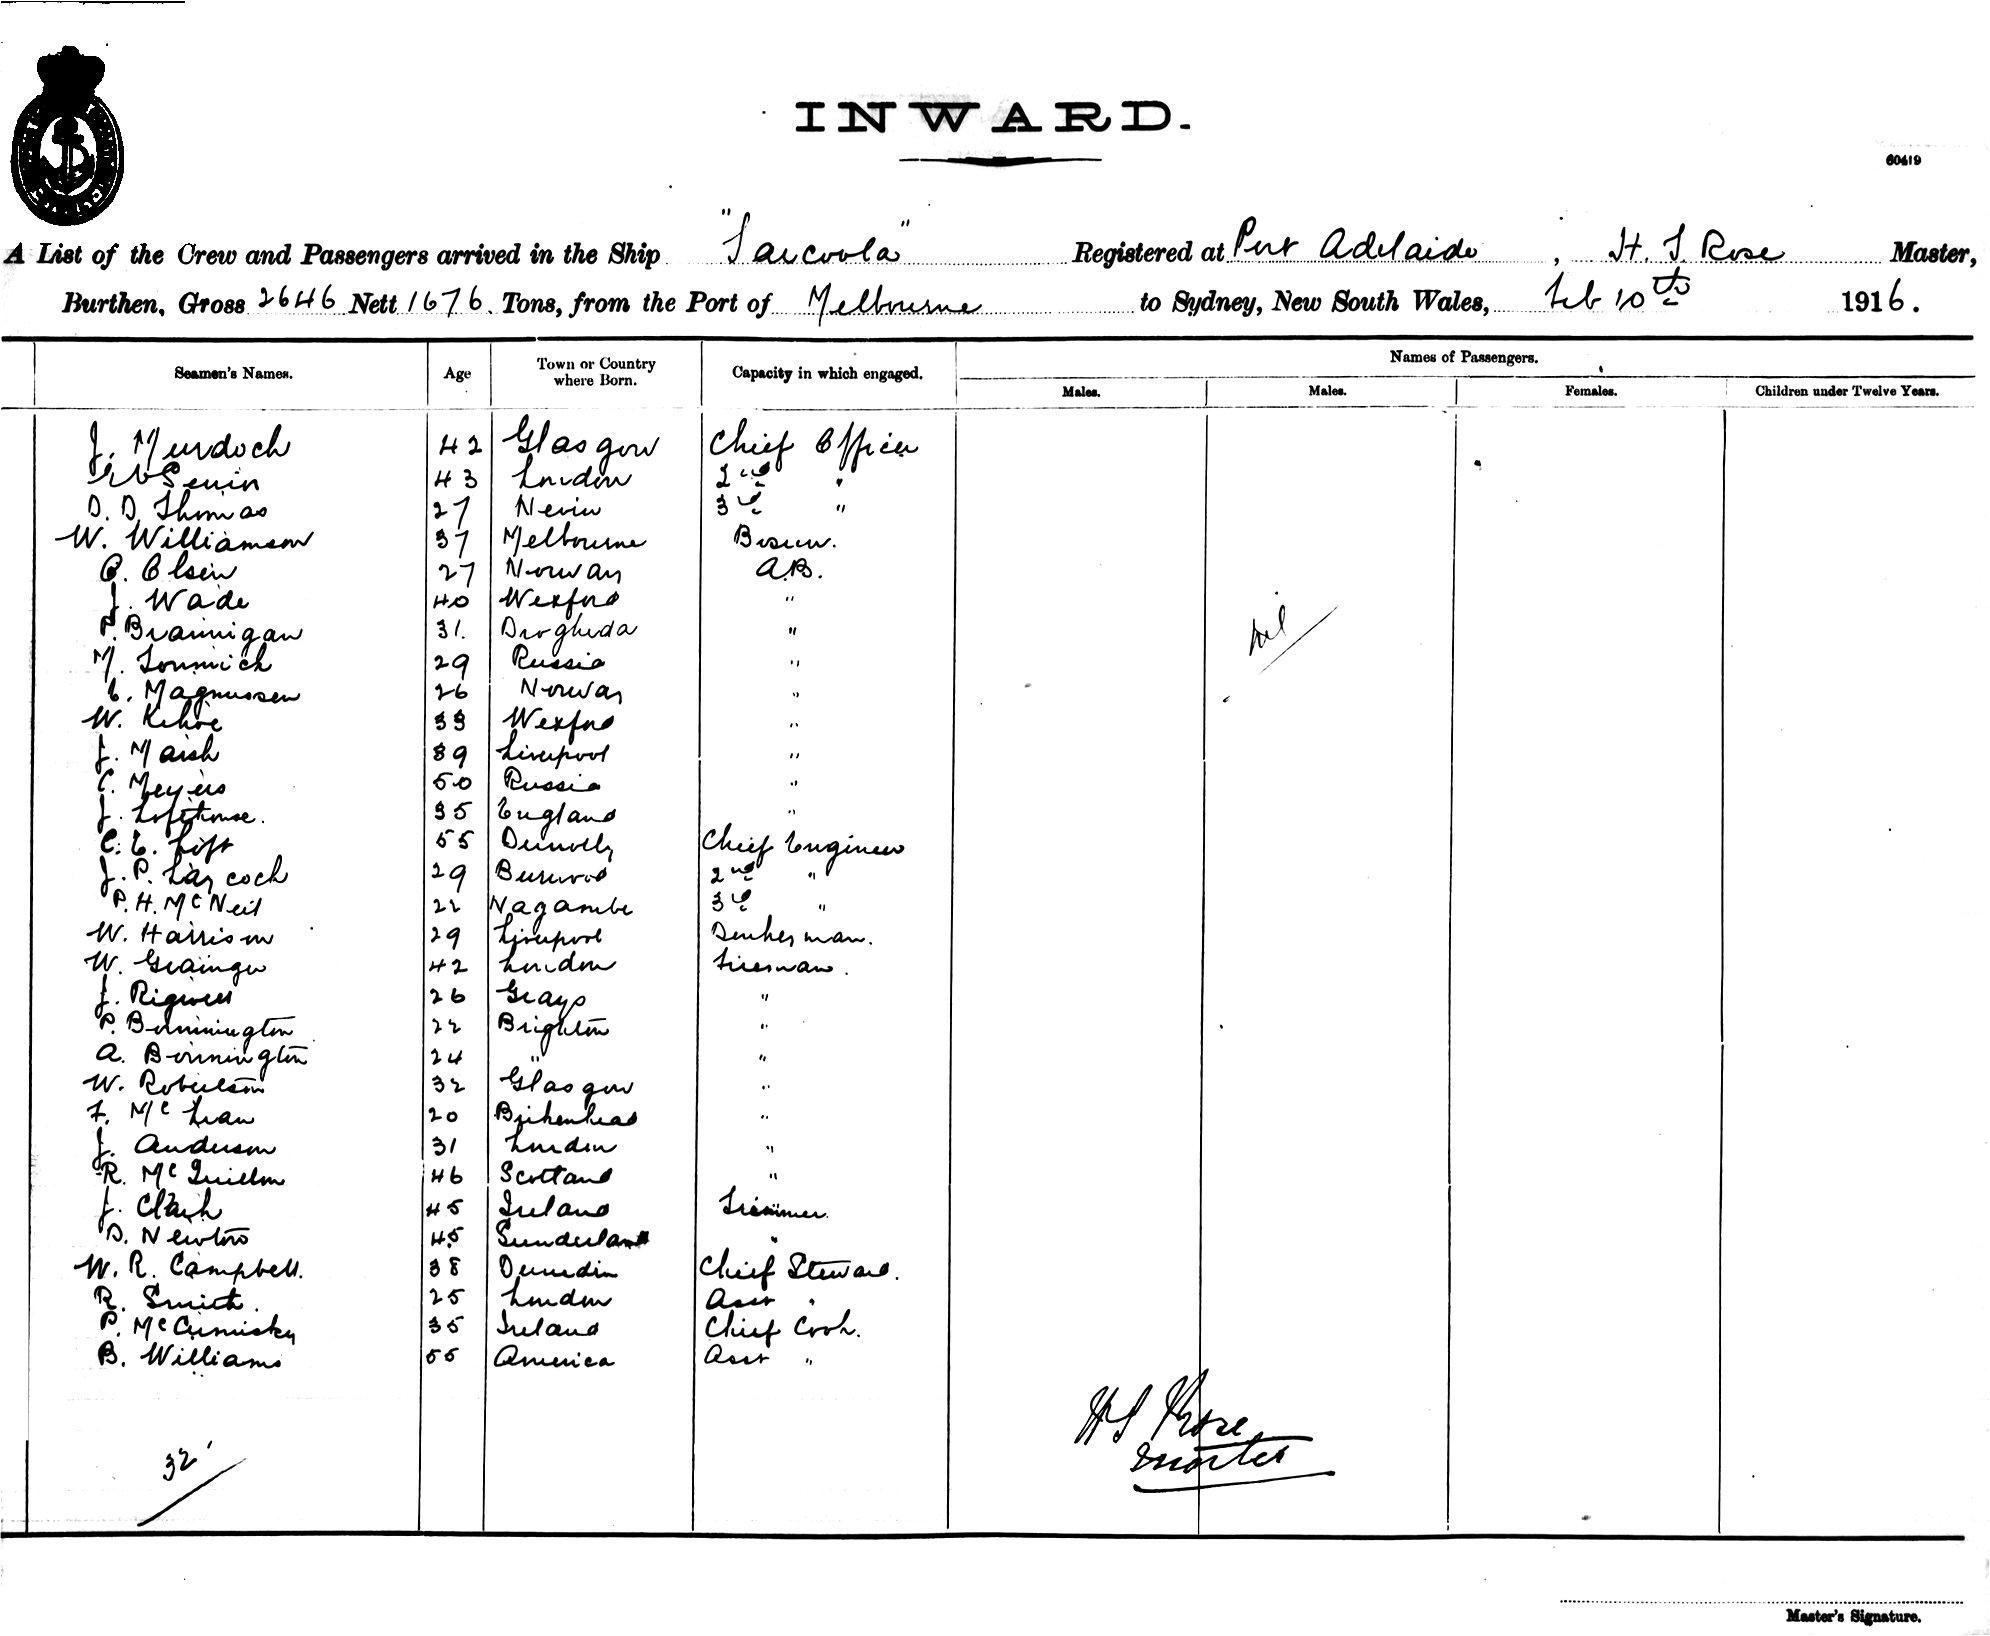 INWARD.
60419
A List of the Crew and Passengers arrived in the Ship "Tarcoola" Registered at Port Adelaide, H. S. Rose Master,
Burthen, Gross 2646 Nett 1676. Tons, from the Port of Melbourne to Sydney, New South Wales, Feb 10th 1916.
Seamen's Names. Age Town or Country where Born. Capacity in which engaged. Names of Passengers.
Males. Males. Females. Children under Twelve Years.
J. Murdoch 42 Glasgow Chief Officer
43 London 2nd "
D. D. Thomas 27 Nevin 3rd "
W. Williamson 37 Melbourne Bosun.
C. Olsen 27 Norway A.B.
J. Wade 40 Wexford "
P. Brannigan 31. Drogheda "
M. 29 Russia "
E. Magnussen 26 Norway "
W. Kehoe 33 Wexford "
J. Marsh 39 Liverpool "
C. Meyers 50 Russia "
J. Lofthouse. 35 England "
C. E. Lift 55 Dunolly Chief Engineer
J. P. Laycock 29 Burwood 2nd "
P. H. McNeil 22 Nagambie 3rd "
W. Harrison 29 Liverpool Donkeyman.
W. Grainger 42 London Fireman.
J. Rigwell 26 Grays "
P. Bonnington 22 Brighton "
A. Bonnington 24 " "
W. Robertson 32 Glasgow "
F. McLean 20 Birkenhead "
J. Anderson 31 London "
R. McQuillon 46 Scotland "
J. Clark 45 Ireland Trimmer.
D. Newton 45 Sunderland "
W. R. Campbell. 38 Dunedin Chief Steward.
R. Smith. 25 London Asst "
P. McCumisky 35 Ireland Chief Cook.
B. Williams 55 America Asst "
Nil
H S Rose
Master
32
Master's Signature.